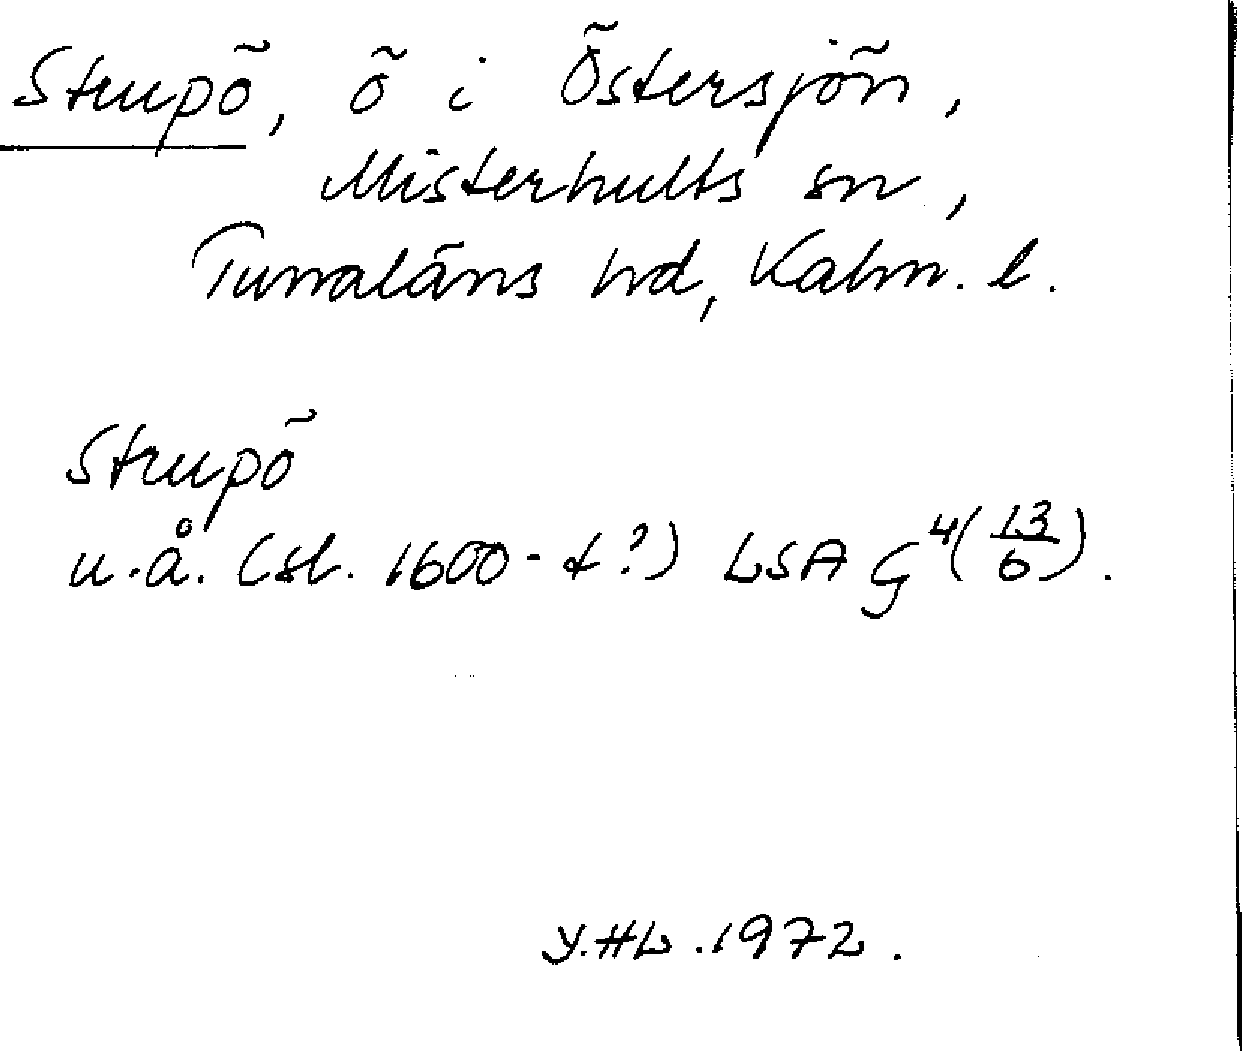 Strupö, ö i Östersjön,
Misterhults sn,
Tunaläns hd, Kalm. l.
Strupö
u.å. (sl. 1600-t?) LSA G⁴(13/6).
Y.HL.1972.